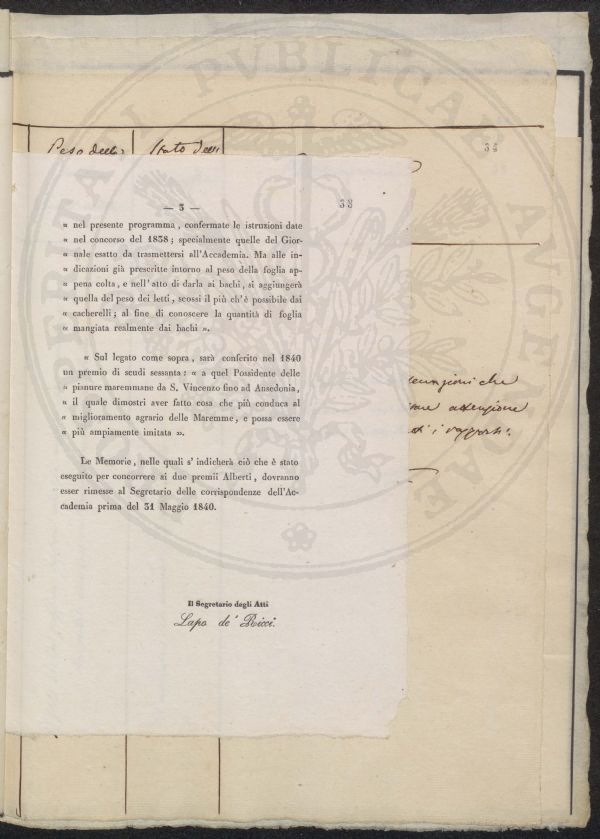 PROSPERITATI PVBLICAE AVGENDAE
33
Peso dello Stato dell
— 3 —
33
« nel presente programma, confermate le istruzioni date
« nel concorso del 1838; specialmente quelle del Gior-
« nale esatto da trasmettersi all'Accademia. Ma alle in-
« dicazioni già prescritte intorno al peso della foglia ap-
« pena colta, e nell'atto di darla ai bachi, si aggiungerà
« quella del peso dei letti, scossi il più ch'è possibile dai
« cacherelli; al fine di conoscere la quantità di foglia
« mangiata realmente dai bachi ».
« Sul legato come sopra, sarà conferito nel 1840
un premio di scudi sessanta: « a quel Possidente delle
« pianure maremmane da S. Vincenzo fino ad Ansedonia,
« il quale dimostri aver fatto cosa che più conduca al
« miglioramento agrario delle Maremme, e possa essere
« più ampiamente imitata ».
che
attenzione
i rapporti.
Le Memorie, nelle quali s'indicherà ciò che è stato
eseguito per concorrere ai due premii Alberti, dovranno
esser rimesse al Segretario delle corrispondenze dell'Ac-
cademia prima del 31 Maggio 1840.
Il Segretario degli Atti
Lapo de' Ricci.